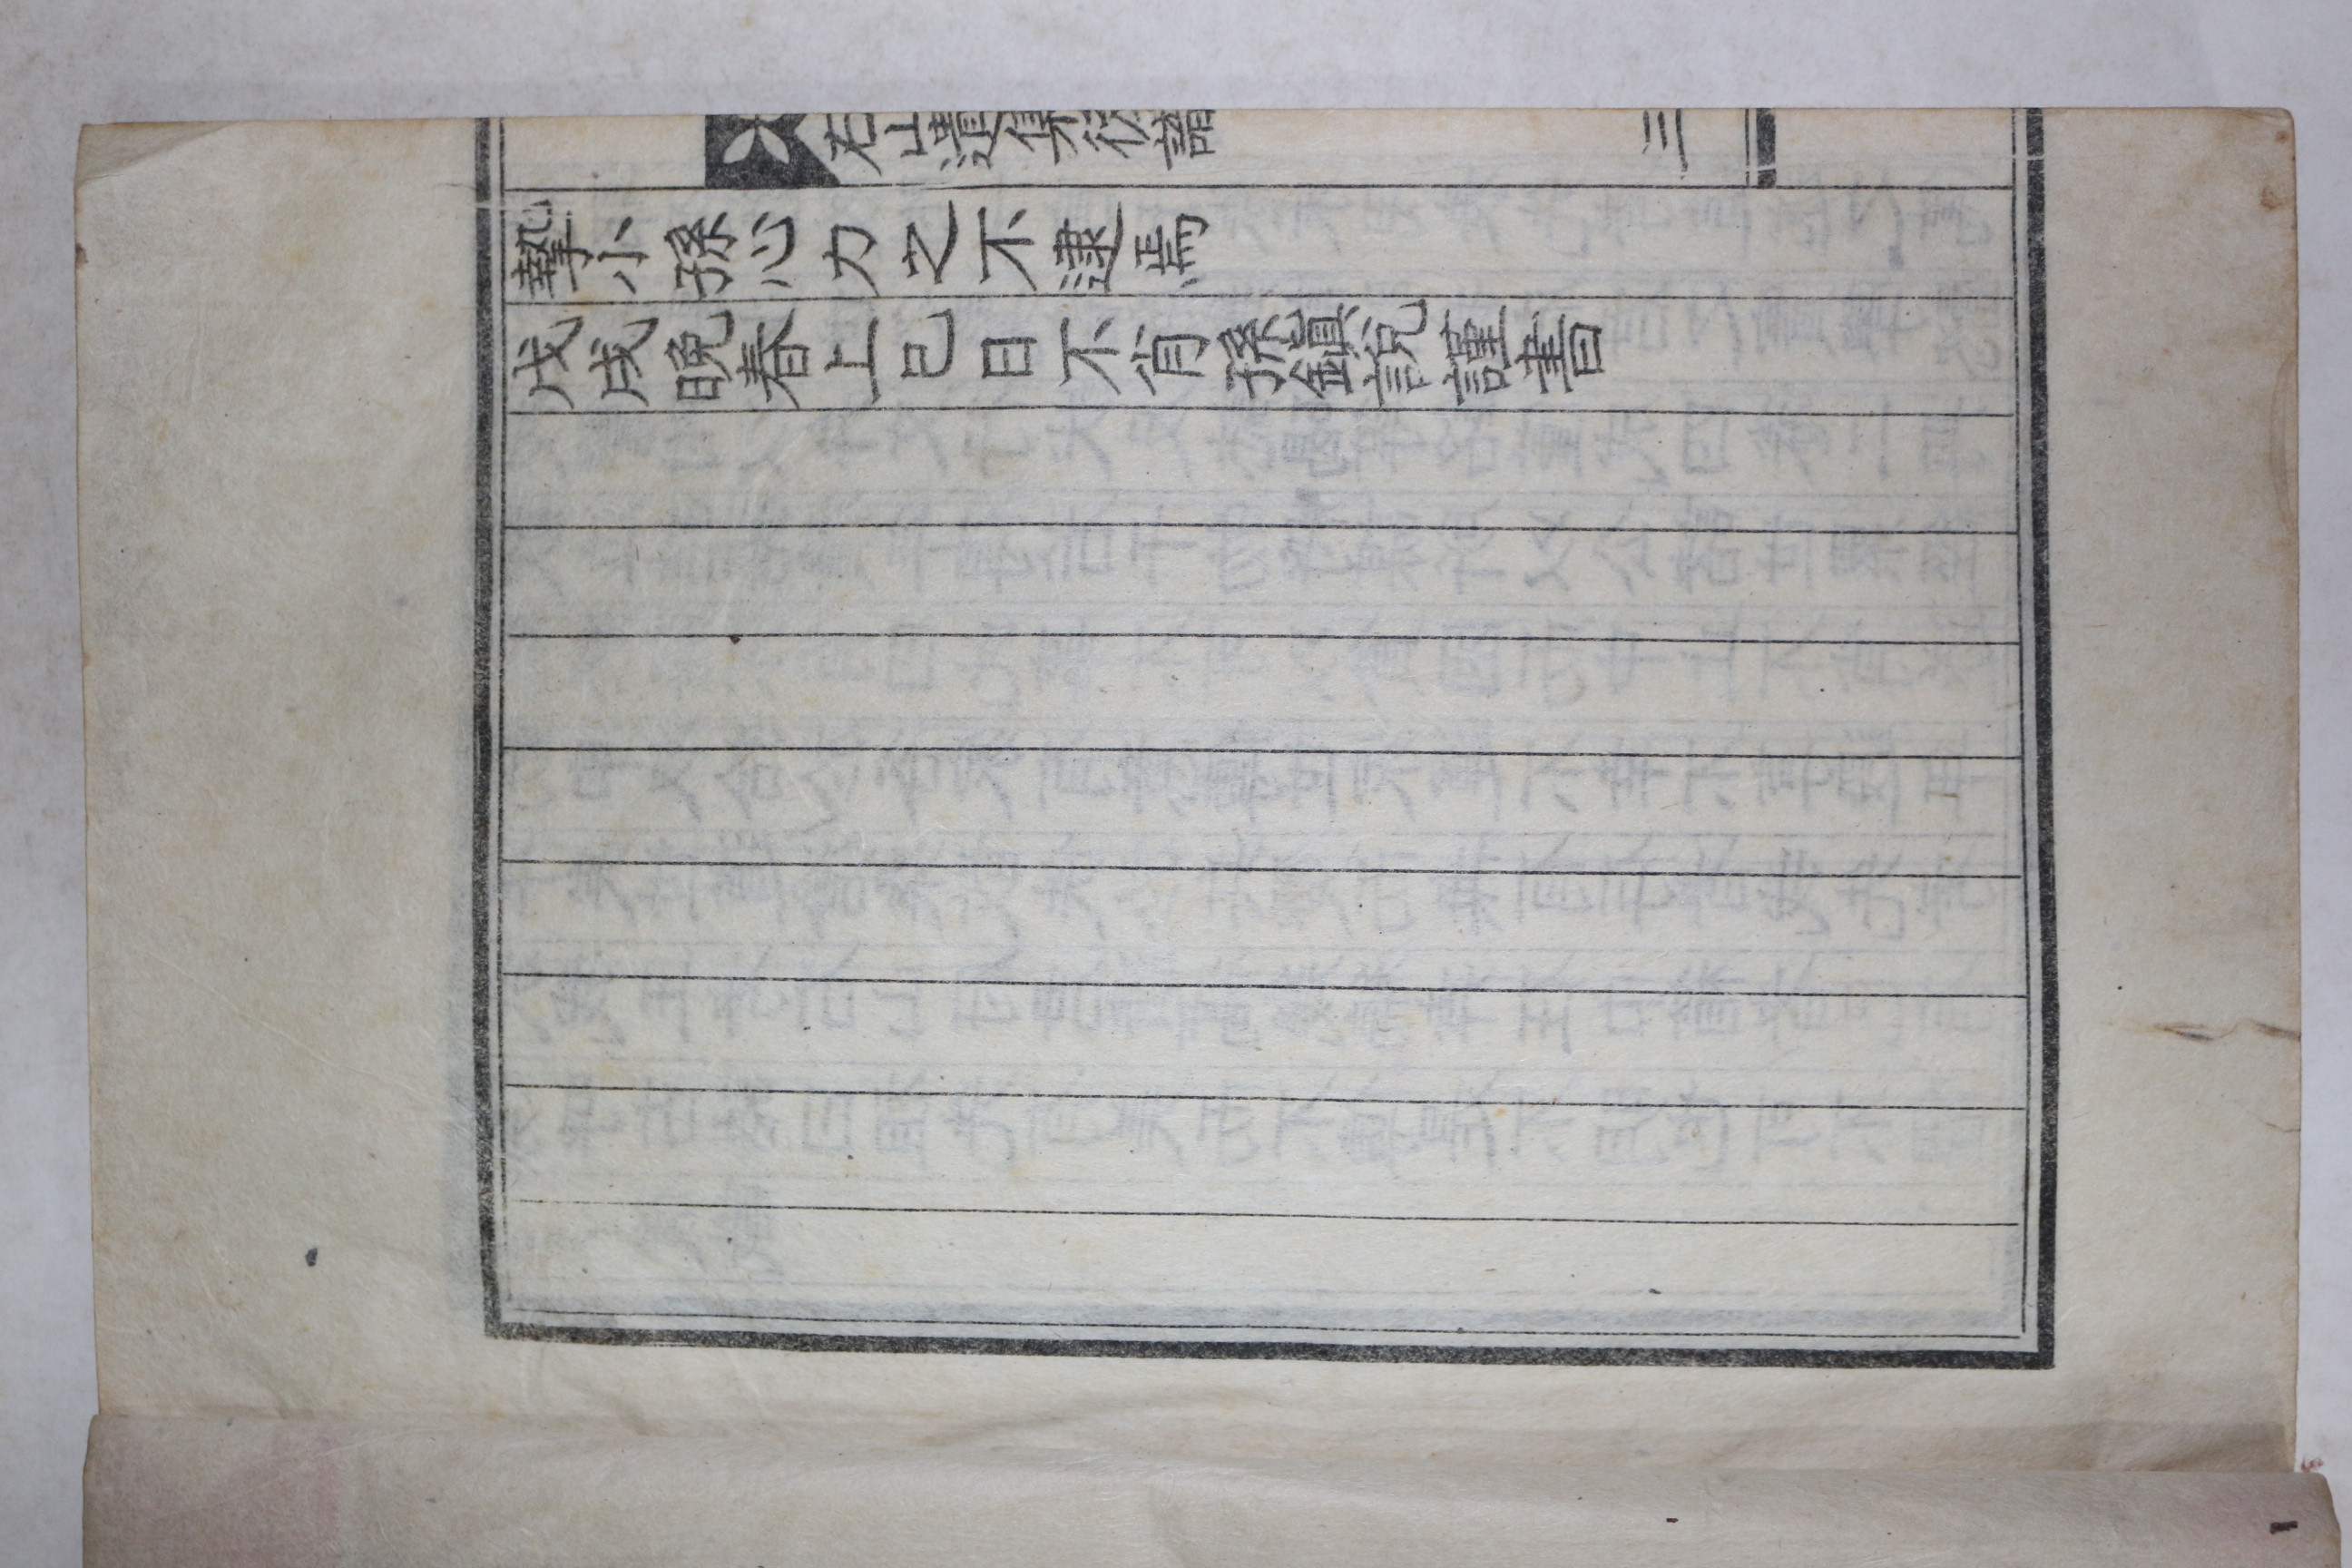 石山遺集後識 三
孼小孫心力之不逮焉
戊戌晩春上巳日不肖孫鎭說謹書